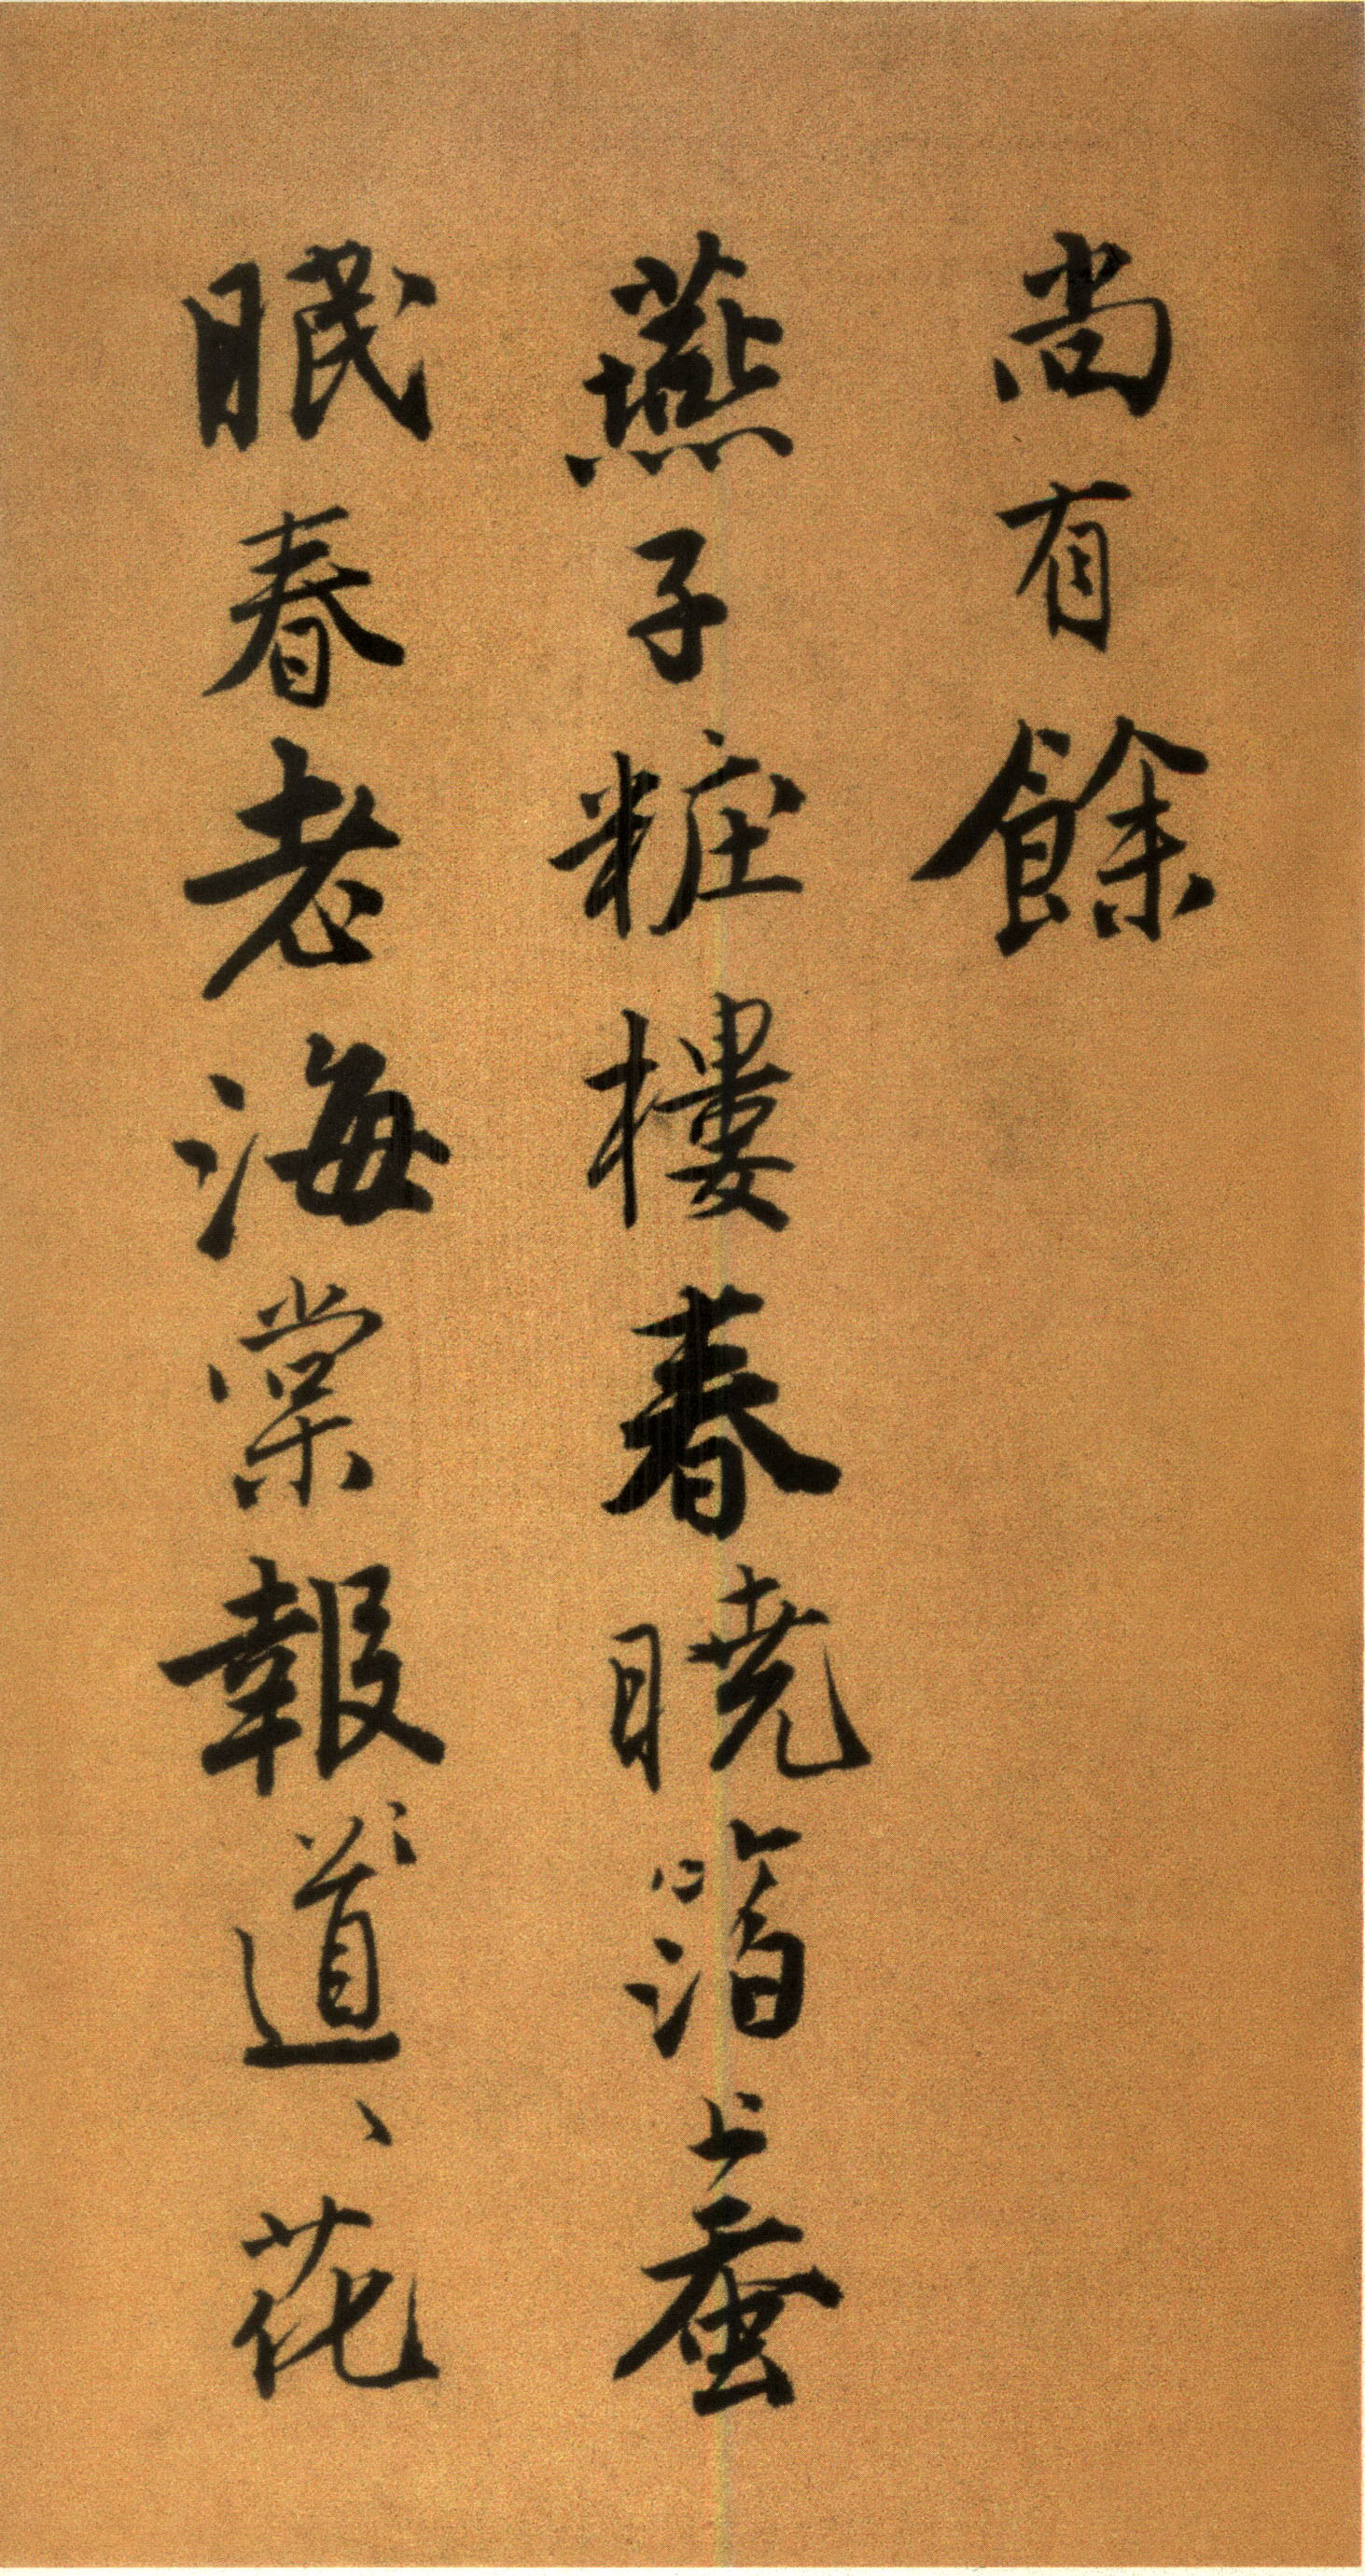 尚有餘
燕子粧樓春曉箔上蚕
眠春老海棠報道、花